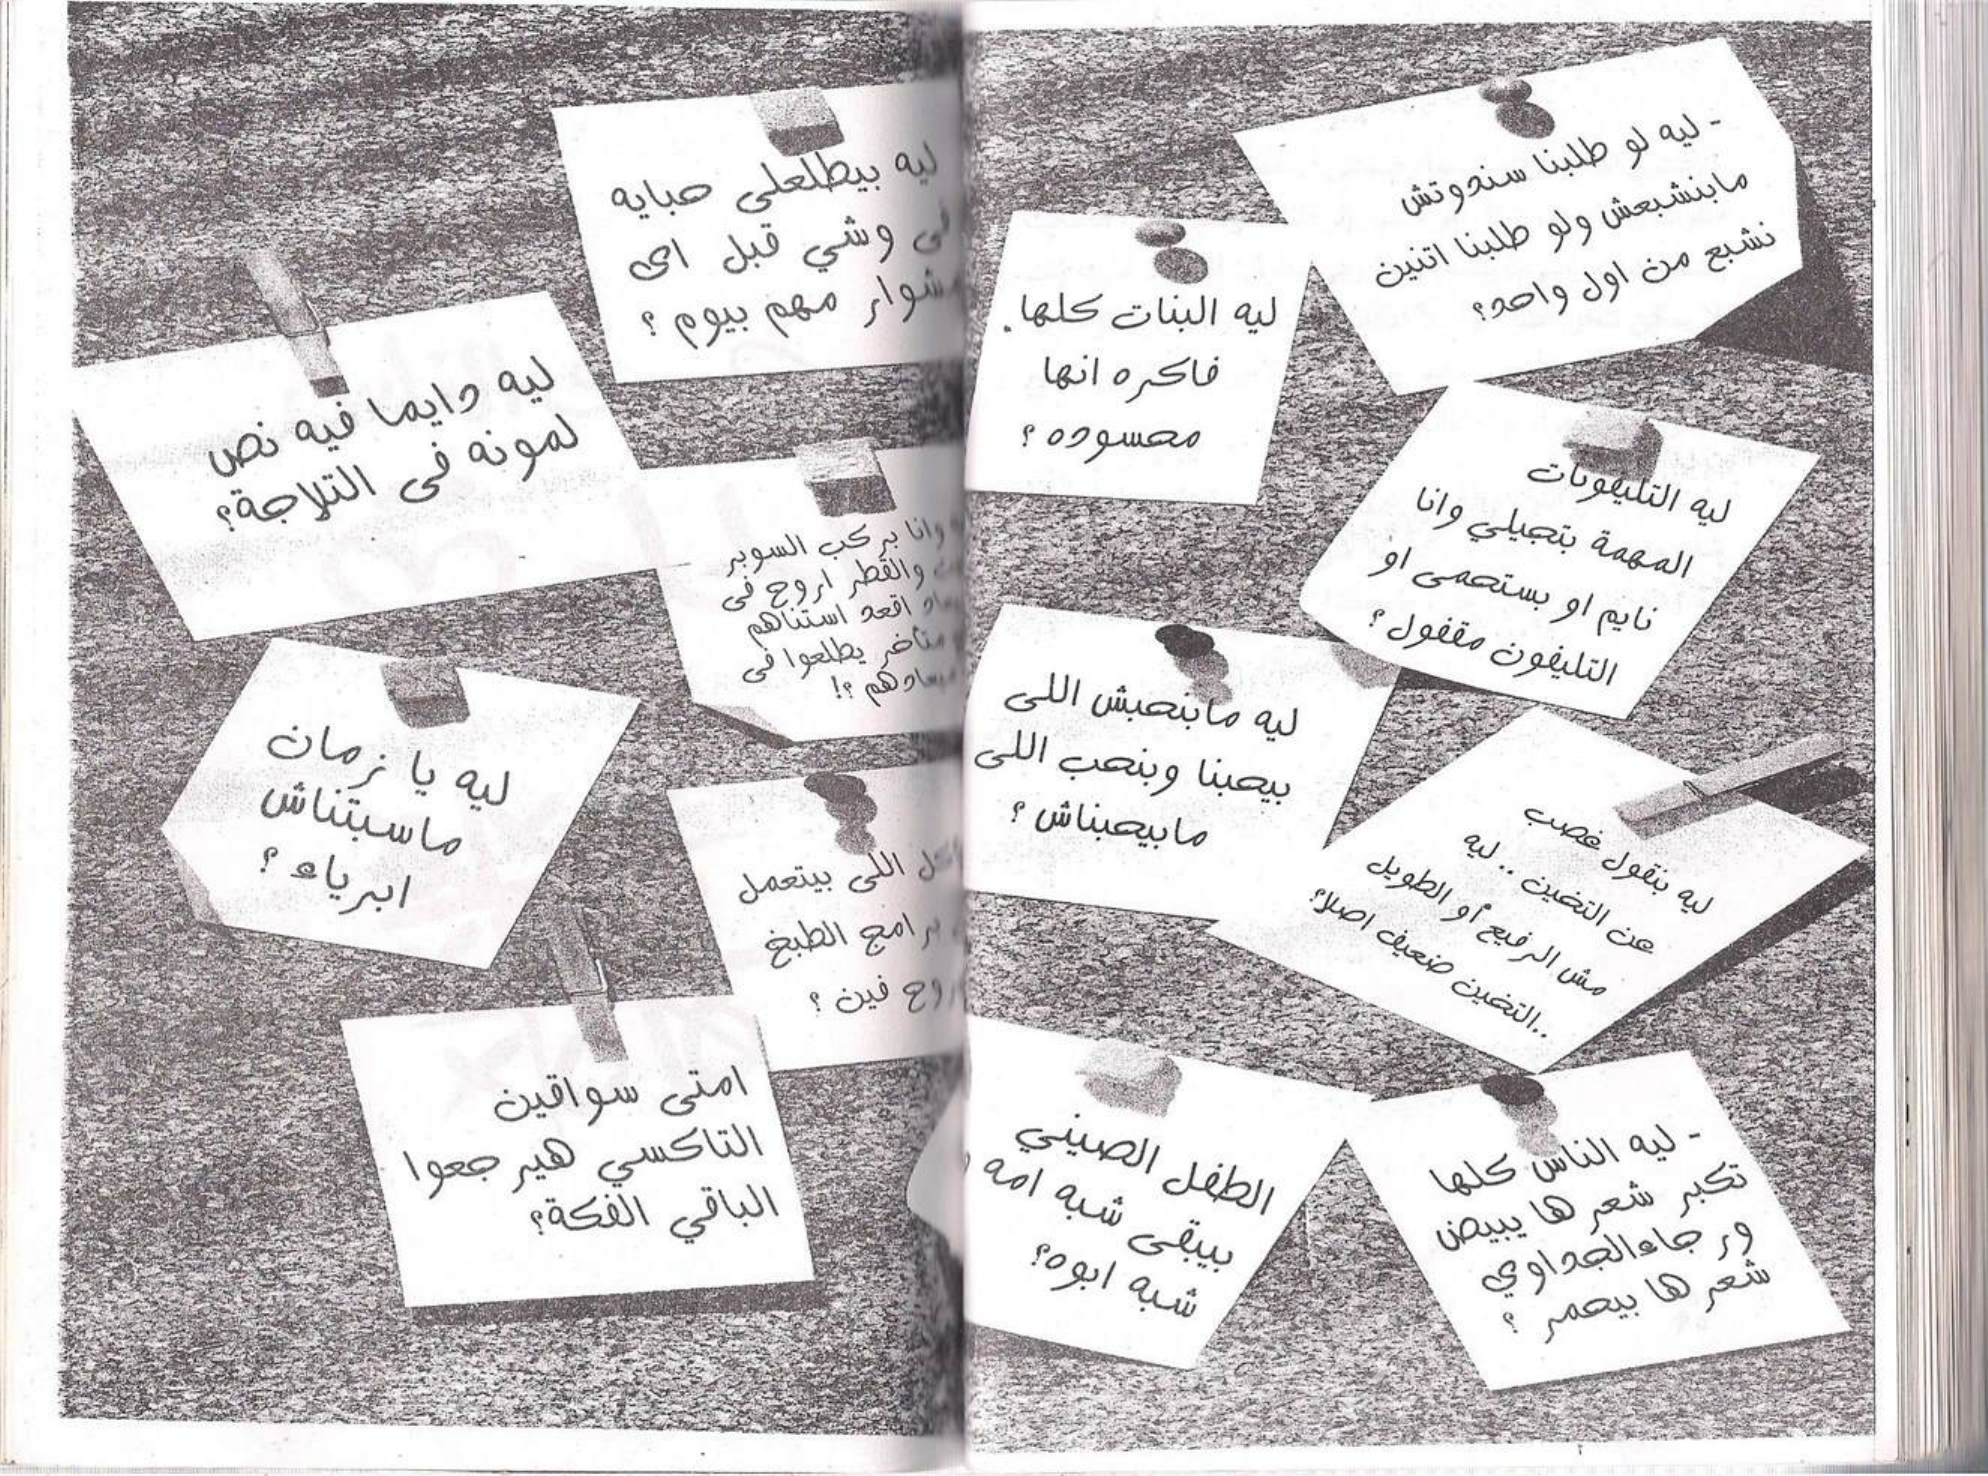 - ليه لو طلبنا سندوتش
مابنشبعش ولو طلبنا اتنين
نشبع من اول واحد؟
ليه البنات كلها
فاكره انها
محسوده ؟
ليه التليفونات
المهمة بتجيلي وانا
نايم او بستحمى او
التليفون مقفول ؟
ليه مابنحبش اللى
بيحبنا وبنحب اللى
مابيحبناش ؟
ليه بنقول غصب
عن التخين .. ليه
مش الرفيع أو الطويل
..التخين ضعيف اصلا؟
الطفل الصيني
بيبقى شبه امه
شبه ابوه؟
- ليه الناس كلها
تكبر شعرها يبيض
ورجاء الجداوي
شعرها بيحمر ؟
ليه بيطلعلى حبايه
فى وشي قبل اى
مشوار مهم بيوم ؟
ليه دايما فيه نص
لمونه فى التلاجة؟
وانا بركب السوبر
والقطر اروح فى
اقعد استناهم
متأخر يطلعوا فى
ميعادهم ؟!
ليه يا زمان
ماسبتناش
ابرياء ؟
اللى بيتعمل
برامج الطبخ
بيروح فين ؟
امتى سواقين
التاكسي هيرجعوا
الباقي الفكة؟